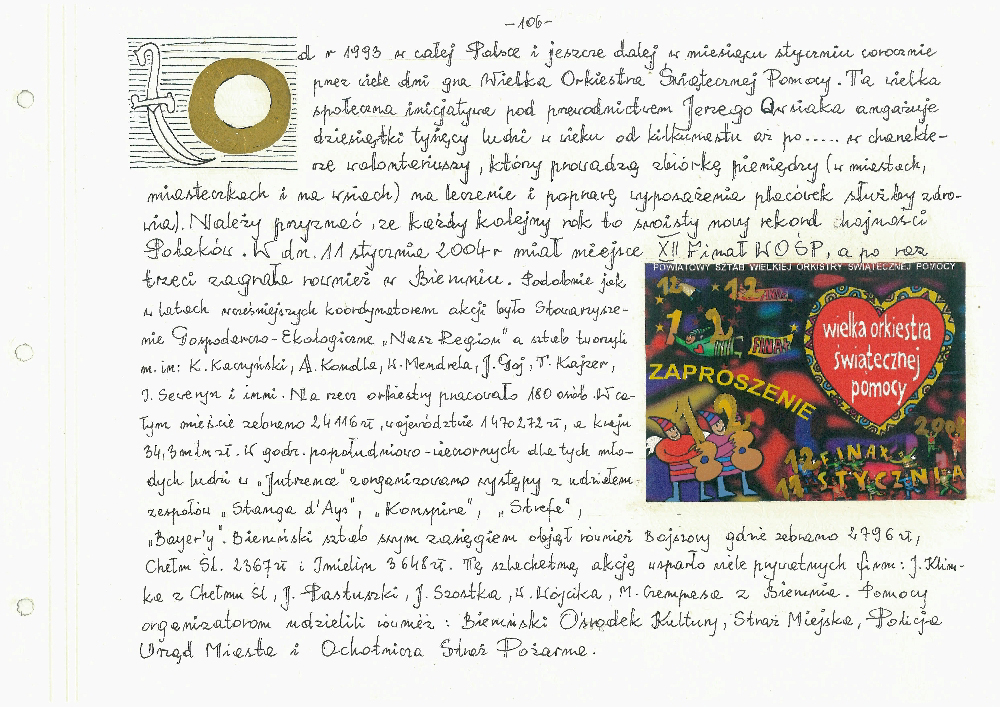 -106-
Od r 1993 w całej Polsce i jeszcze dalej w miesiącu styczniu corocznie
przez wiele dni gra Wielka Orkiestra Świątecznej Pomocy. Ta wielka
społeczna inicjatywa pod przewodnictwem Jerzego Owsiaka angażuje
dziesiątki tysięcy ludzi w wieku od kilkunastu aż po..... w charakte-
rze wolontariuszy, który prowadzą zbiórkę pieniędzy (w miastach,
miasteczkach i na wsiach) na leczenie i poprawę wyposażenia placówek służby zdro-
wia). Należy przyznać, że każdy kolejny rok to swoisty nowy rekord hojności
Polaków. W dn. 11 stycznia 2004r miał miejsce XII Finał WOŚP, a po raz
trzeci zagrała również w Bieruniu. Podobnie jak
w latach wcześniejszych koordynatorem akcji było Stowarzysze-
nie Gospodarczo-Ekologiczne „Nasz Region" a sztab tworzyli
m.in: K. Kaczyński, A. Kondla, W. Mendrela, J. Goj, T. Kajzer,
J. Seweryn i inni. Na rzecz orkiestry pracowało 180 osób. W ca-
łym mieście zebrano 24116 zł, województwie 1470272 zł, a kraju
34,3 mln zł. W godz. popołudniowo-wieczornych dla tych mło-
dych ludzi w „Jutrzence" zorganizowano występy z udziałem
zespołów „Stanga d'Ays", „Konspira", „Strefa",
„Bayer'y". Bieruński sztab swym zasięgiem objął również Bojszowy gdzie zebrano 2796 zł,
Chełm Śl. 2367 zł i Imielin 3648 zł. Tę szlachetną akcję wsparło wiele prywatnych firm: J. Klim-
ka z Chełmu Śl, J. Pastuszki, J. Szostka, W. Wójcika, M. Czempasa z Bierunia. Pomocy
organizatorom udzielili również: Bieruński Ośrodek Kultury, Straż Miejska, Policja
Urząd Miasta i Ochotnicza Straż Pożarna.
POWIATOWY SZTAB WIELKIEJ ORKISTRY ŚWIĄTECZNEJ POMOCY
12 12 FINAŁ
12 FINAŁ
wielka orkiestra
świątecznej
pomocy
ZAPROSZENIE
12
12 FINAŁ
11 STYCZNIA